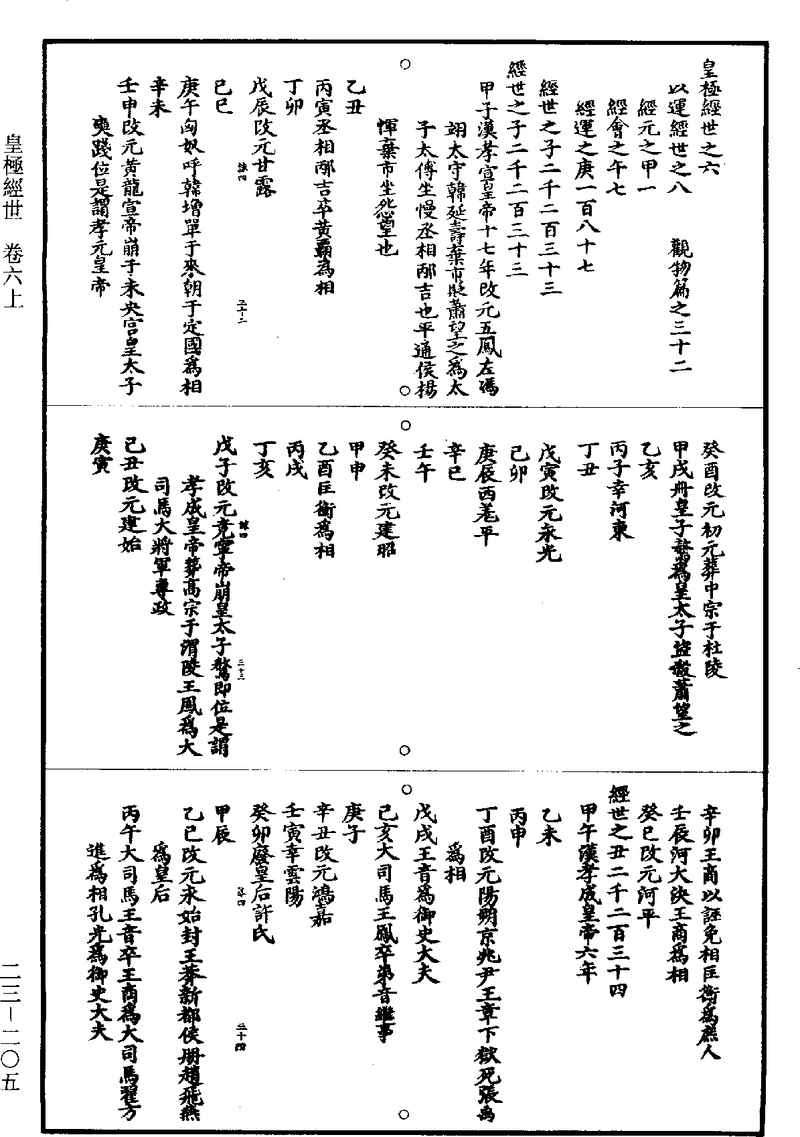 皇極經世之六
以運經世之八　觀物篇之三十二
經元之甲一
經會之午七
經運之庚一百八十七
經世之子二千二百三十三
經世之子二千二百三十三
甲子漢孝宣皇帝十七年改元五鳳左馮
翊太守韓延壽棄市貶蕭望之為太
子太傅坐慢丞相邴吉也平通侯楊
惲棄市坐怨望也
乙丑
丙寅丞相邴吉卒黃霸為相
丁卯
戊辰改元甘露
己巳
庚午匈奴呼韓增單于來朝于定國爲相
辛未
壬申改元黃龍宣帝崩于未央宫皇太子
奭踐位是謂孝元皇帝
癸酉改元初元葬中宗于杜陵
甲戌冊皇子驁爲皇太子盜殺蕭望之
乙亥
丙子幸河東
丁丑
戊寅改元永光
己卯
庚辰西羌平
辛巳
壬午
癸未改元建昭
甲申
乙酉匡衡爲相
丙戌
丁亥
戊子改元竟寧帝崩皇太子驁即位是謂
孝成皇帝葬高宗于渭陵王鳳爲大
司馬大將軍專政
己丑改元建始
庚寅
辛卯王商以誣免相匡衡爲庶人
壬辰河大決王商爲相
癸巳改元河平
經世之丑二千二百三十四
甲午漢孝成皇帝六年
乙未
丙申
丁酉改元陽朔京兆尹王章下獄死張禹
爲相
戊戌王音爲御史大夫
己亥大司馬王鳳卒弟音繼事
庚子
辛丑改元鴻嘉
壬寅幸雲陽
癸卯廢皇后許氏
甲辰
乙巳改元永始封王莽新都侯冊趙飛燕
爲皇后
丙午大司馬王音卒王商爲大司馬翟方
進爲相孔光爲御史大夫
三十二
三十三
三十四
皇極經世　卷六上
二三－二〇五